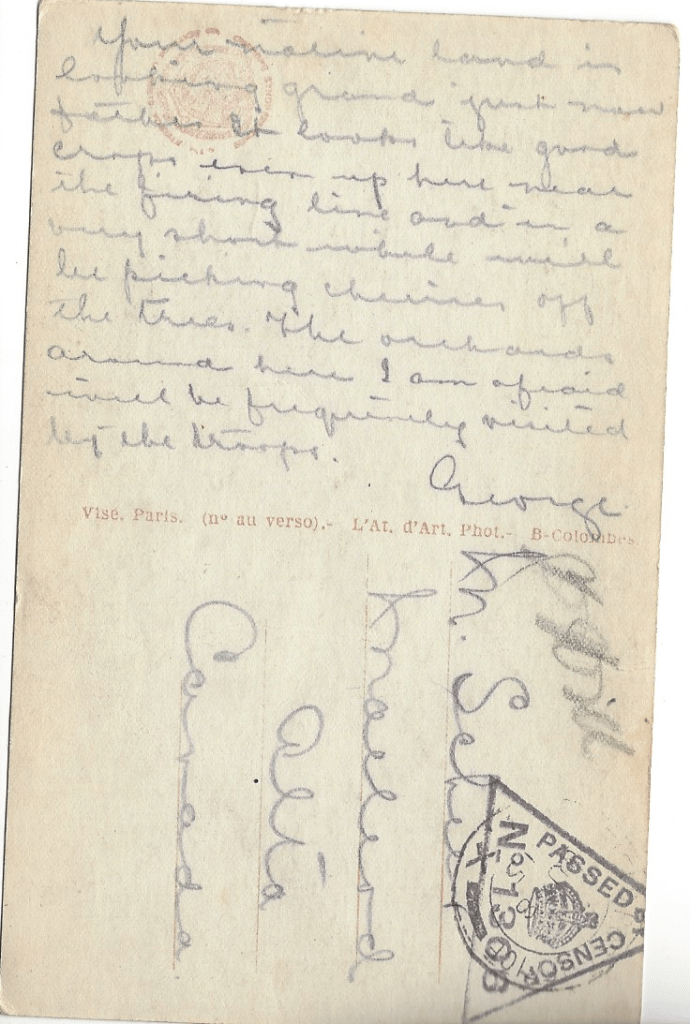 Your native land is
looking grand just now
Father. It looks like good
crops even up here near
the firing line and in a
very short while will
be picking cherries off
the trees. The orchards
around here I am afraid
will be frequently visited
by the troops.
George.
Visé. Paris. (nº au verso).- L'At. d'Art. Phot.- B-Colombes
Macleod
Alta
Canada
PASSED BY
CENSOR
Nº 1366